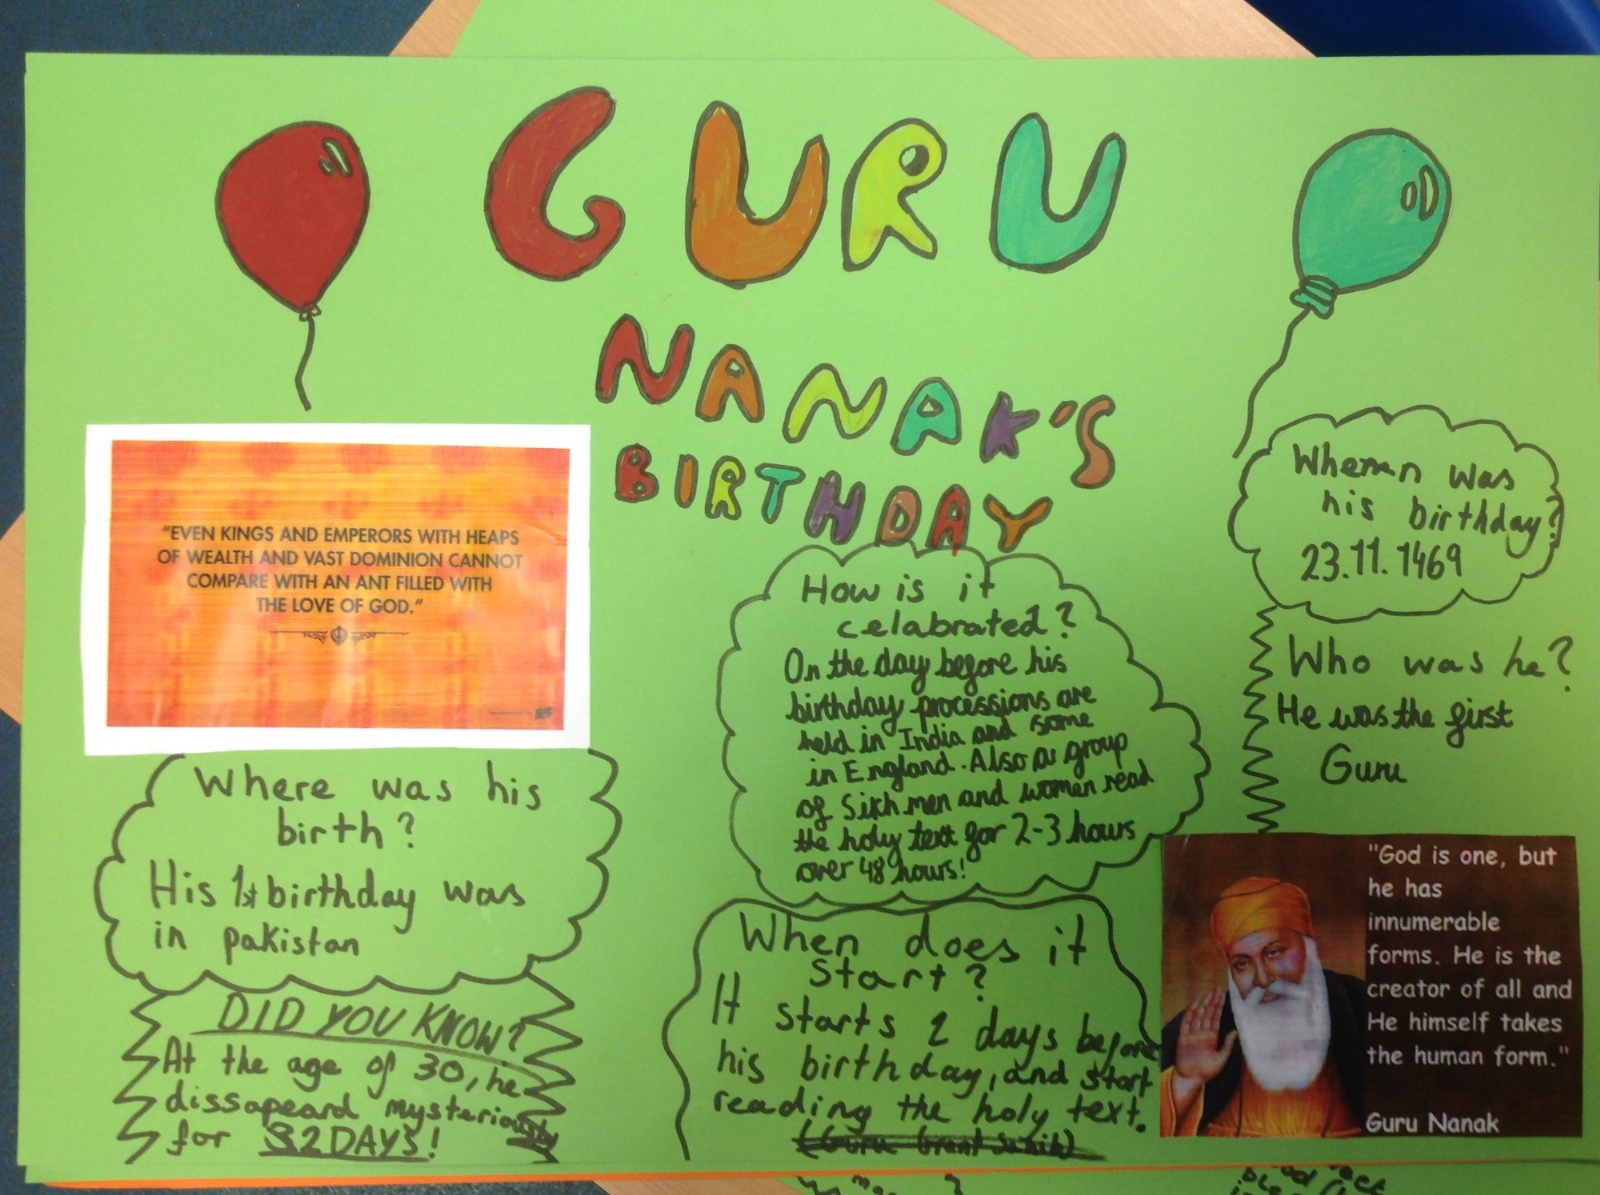 GURU
NANAK'S
BIRTHDAY
"EVEN KINGS AND EMPERORS WITH HEAPS
OF WEALTH AND VAST DOMINION CANNOT
COMPARE WITH AN ANT FILLED WITH
THE LOVE OF GOD."
Where was his
birth?
His 1st birthday was
in pakistan
DID YOU KNOW?
At the age of 30, he
dissapeard mysteriously
for 32 DAYS!
How is it
celabrated?
On the day before his
birthday processions are
held in India and some
in England. Also a group
of Sikh men and women read
the holy text for 2-3 hours
over 48 hours!
When does it
start?
It starts 2 days before
his birthday, and start
reading the holy text.
(Guru Grant Sahib)
was
his birthday?
23.11.1469
Who was he?
He was the first
Guru
"God is one, but
he has
innumerable
forms. He is the
creator of all and
He himself takes
the human form."
Guru Nanak